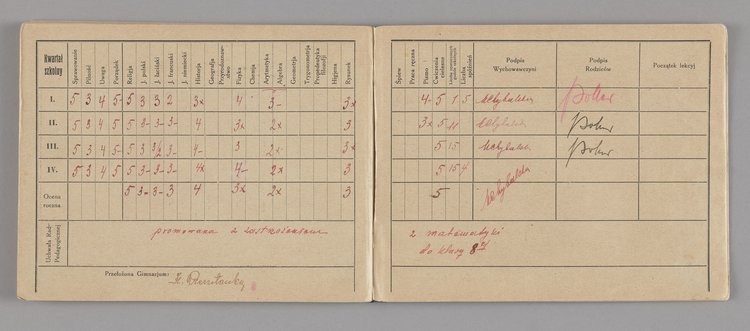 Kwartał szkolny Sprawowanie Pilność Uwaga Porządek Religja J. polski J. łaciński J. francuski J. niemiecki Historja Geografja Przyrodoznawstwo Fizyka Chemja Arytmetyka Algebra Geometrja Trygonometrja Propedeutyka filozofji Higjena Rysunek
I. 5 3 4 5- 5 3 3 2 3x 4 3- 3x
II. 5 3 4 5 5 3- 3- 3- 4 3x 2x 3
III. 5 3 4 5- 5 3 3- 4- 3 2x 3x
IV. 5 3 4 5 5 3- 3- 3 4x 4- 2x 3
Ocena roczna 5 3- 3- 3 4 3x 2x 3
Uchwała Rady Pedagogicznej promowana z zastrzeżeniem
Przełożona Gimnazjum:
Śpiew Praca ręczna Pismo Ćwiczenia cielesne Liczba opuszczonych godzin szkolnych Liczba spóźnień Podpis Wychowawczyni Podpis Rodziców Początek lekcyj
4- 5 1 5
3x 5 14
5 15
5 15 4
5
z matematyki
do klasy 8ej